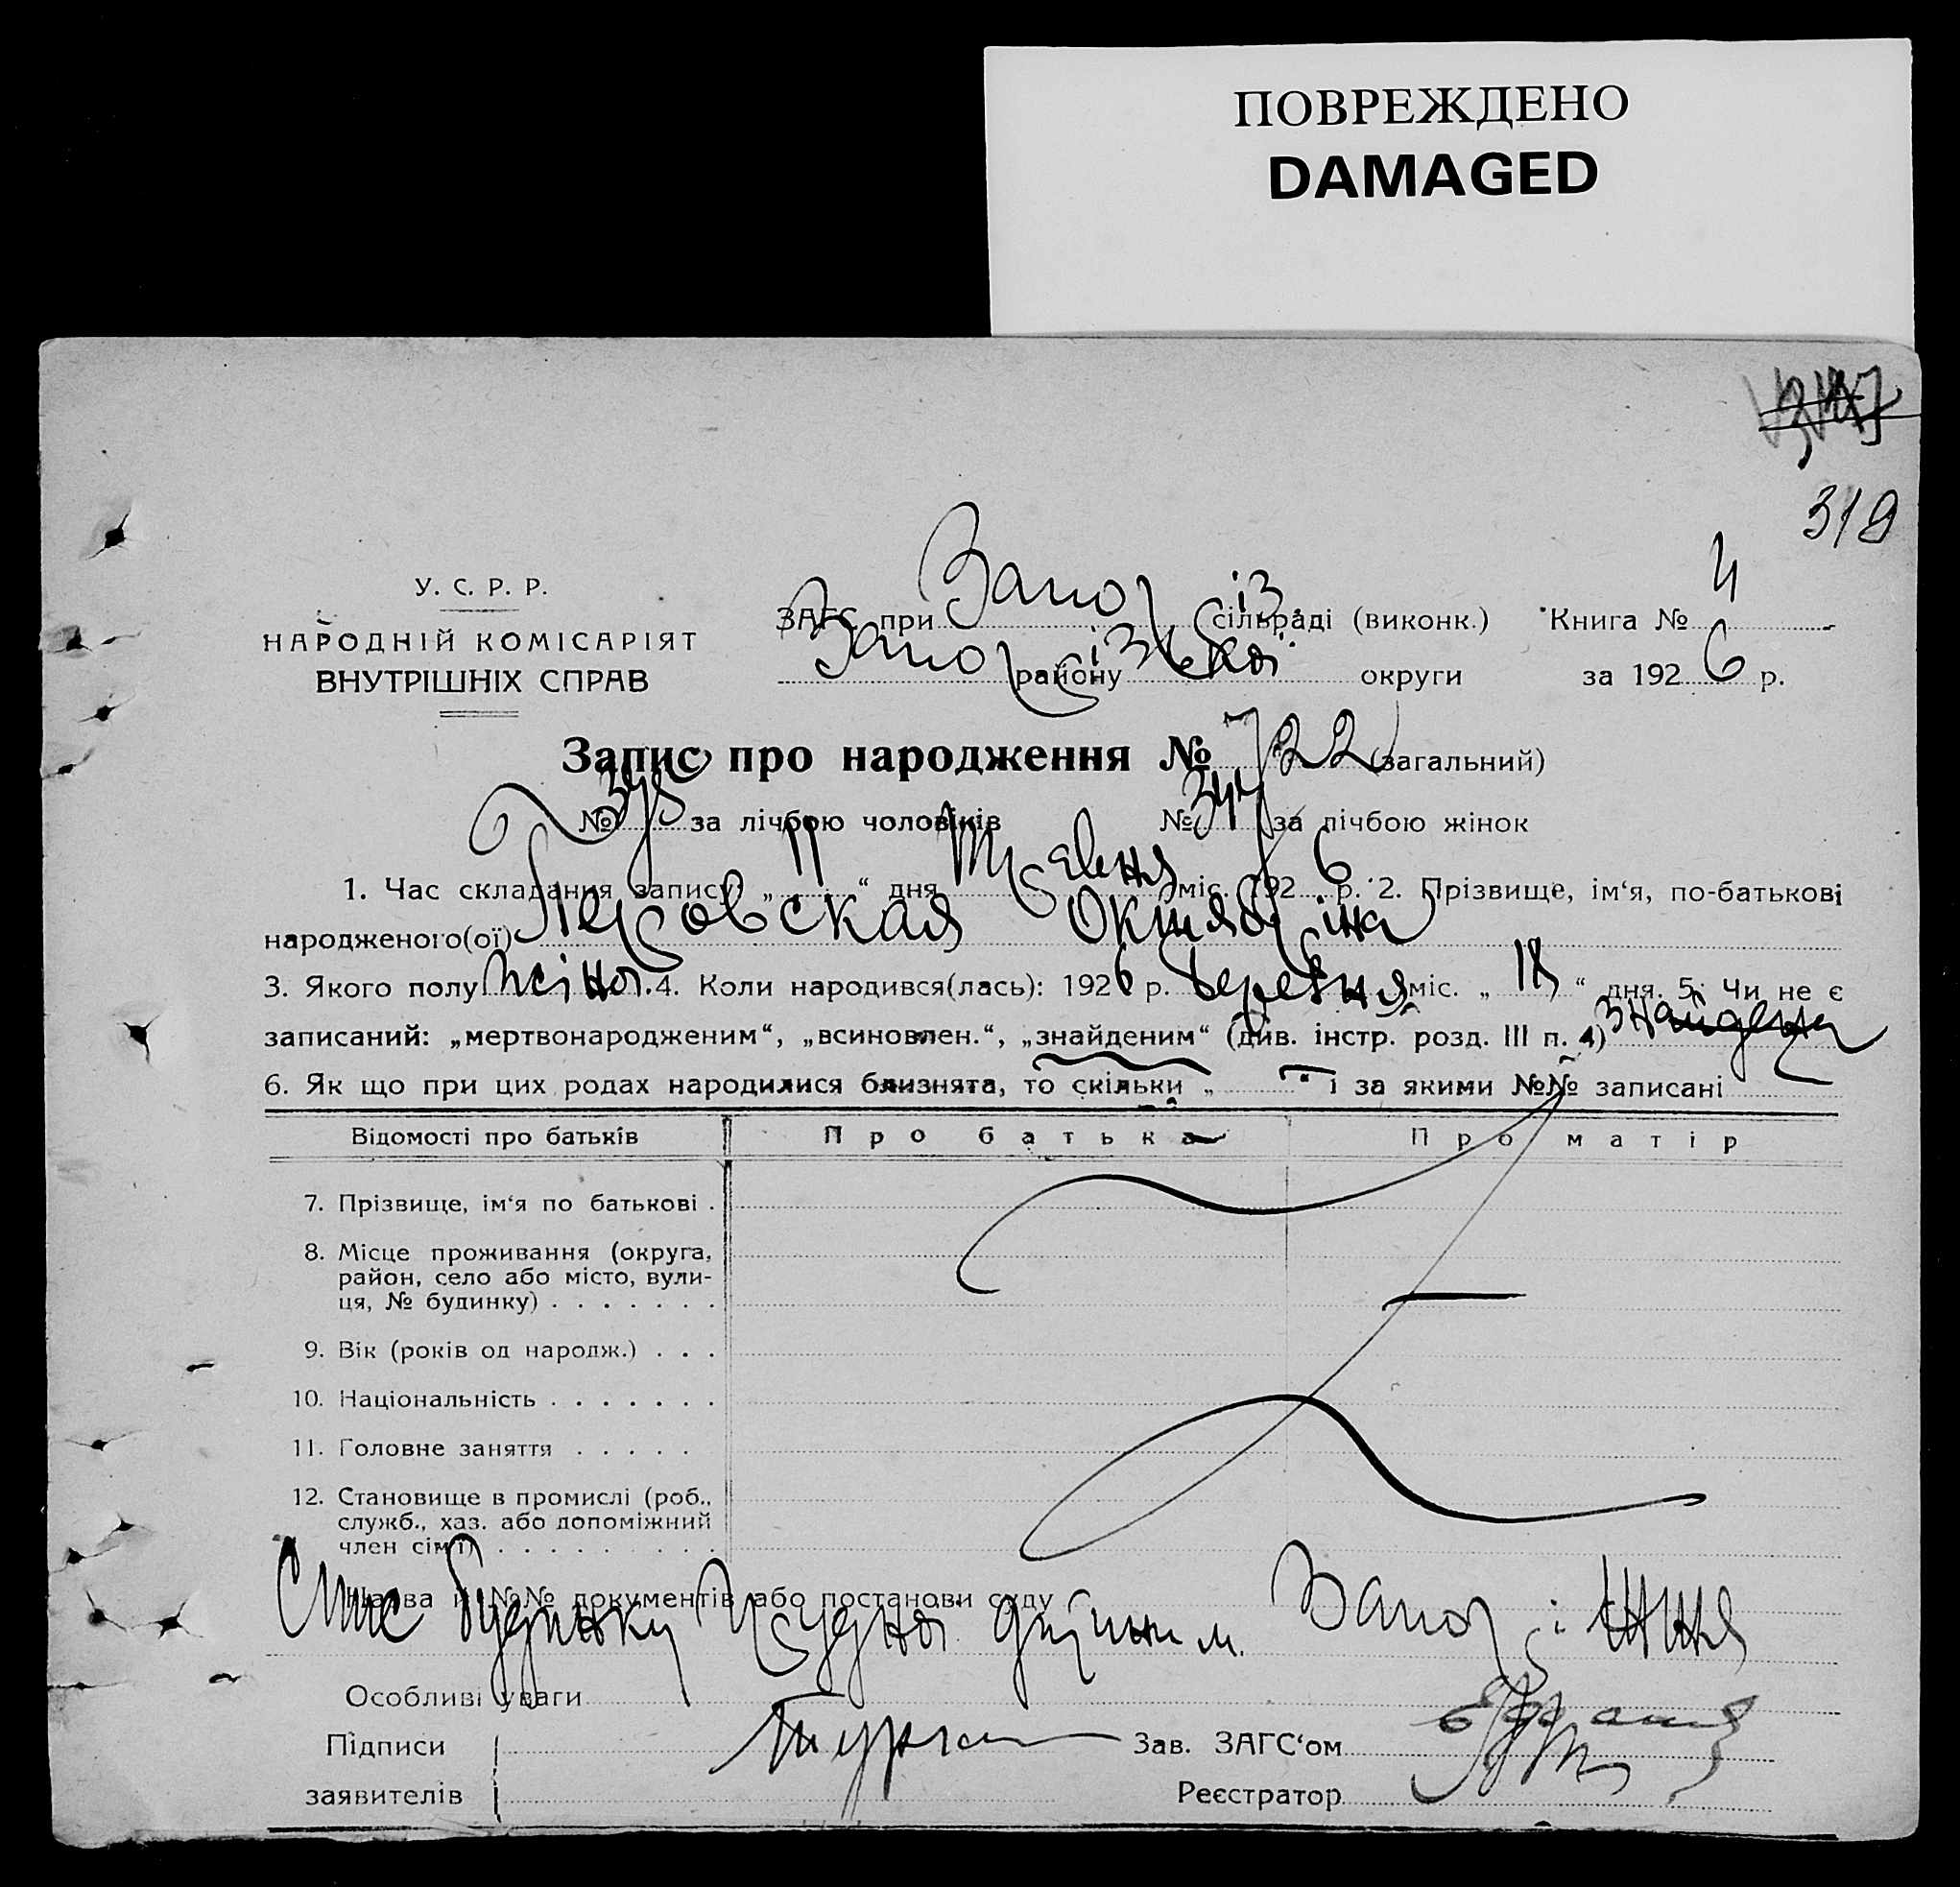 ПОВРЕЖДЕНО
DAMAGED
319
У. С. Р. Р.
НАРОДНІЙ КОМІСАРІЯТ
ВНУТРІШНІХ СПРАВ
ЗАГС при Запоріз сільраді (виконк.) Книга № 4
Запорізької району округи за 1926 р.
Запис про народження № 722 (загальний)
№ 378 за лічбою чоловіків № 344 за лічбою жінок
1. Час складання запису: „11“ дня Травня міс. 1926 р. 2. Прізвище, ім‘я, по-батькові
народженого(ої) Перовская Октябріна
3. Якого полу жіноч. 4. Коли народився(лась): 1926 р. Березня міс. „18“ дня. 5. Чи не є
записаний: „мертвонародженим“, „всиновлен.“, „знайденим“ (див. інстр. розд. III п. 4) знайдена
6. Як що при цих родах народилися близнята, то скільки „ “ і за якими №№ записані
Відомості про батьків Про батька Про матір
7. Прізвище, ім‘я по батькові .
8. Місце проживання (округа,
район, село або місто, вули-
ця, № будинку) . . . . . . .
9. Вік (років од народж.) . . .
10. Національність . . . . . . .
11. Головне заняття . . . . .
12. Становище в промислі (роб.,
служб., хаз. або допоміжний
член сім‘ї) . . . . . . . . .
Назва й №№ документів або постанови суду
Спис будинку грудної дитини м. Запоріжжя
Особливі уваги
Підписи Зав. ЗАГС‘ом
заявителів Реєстратор